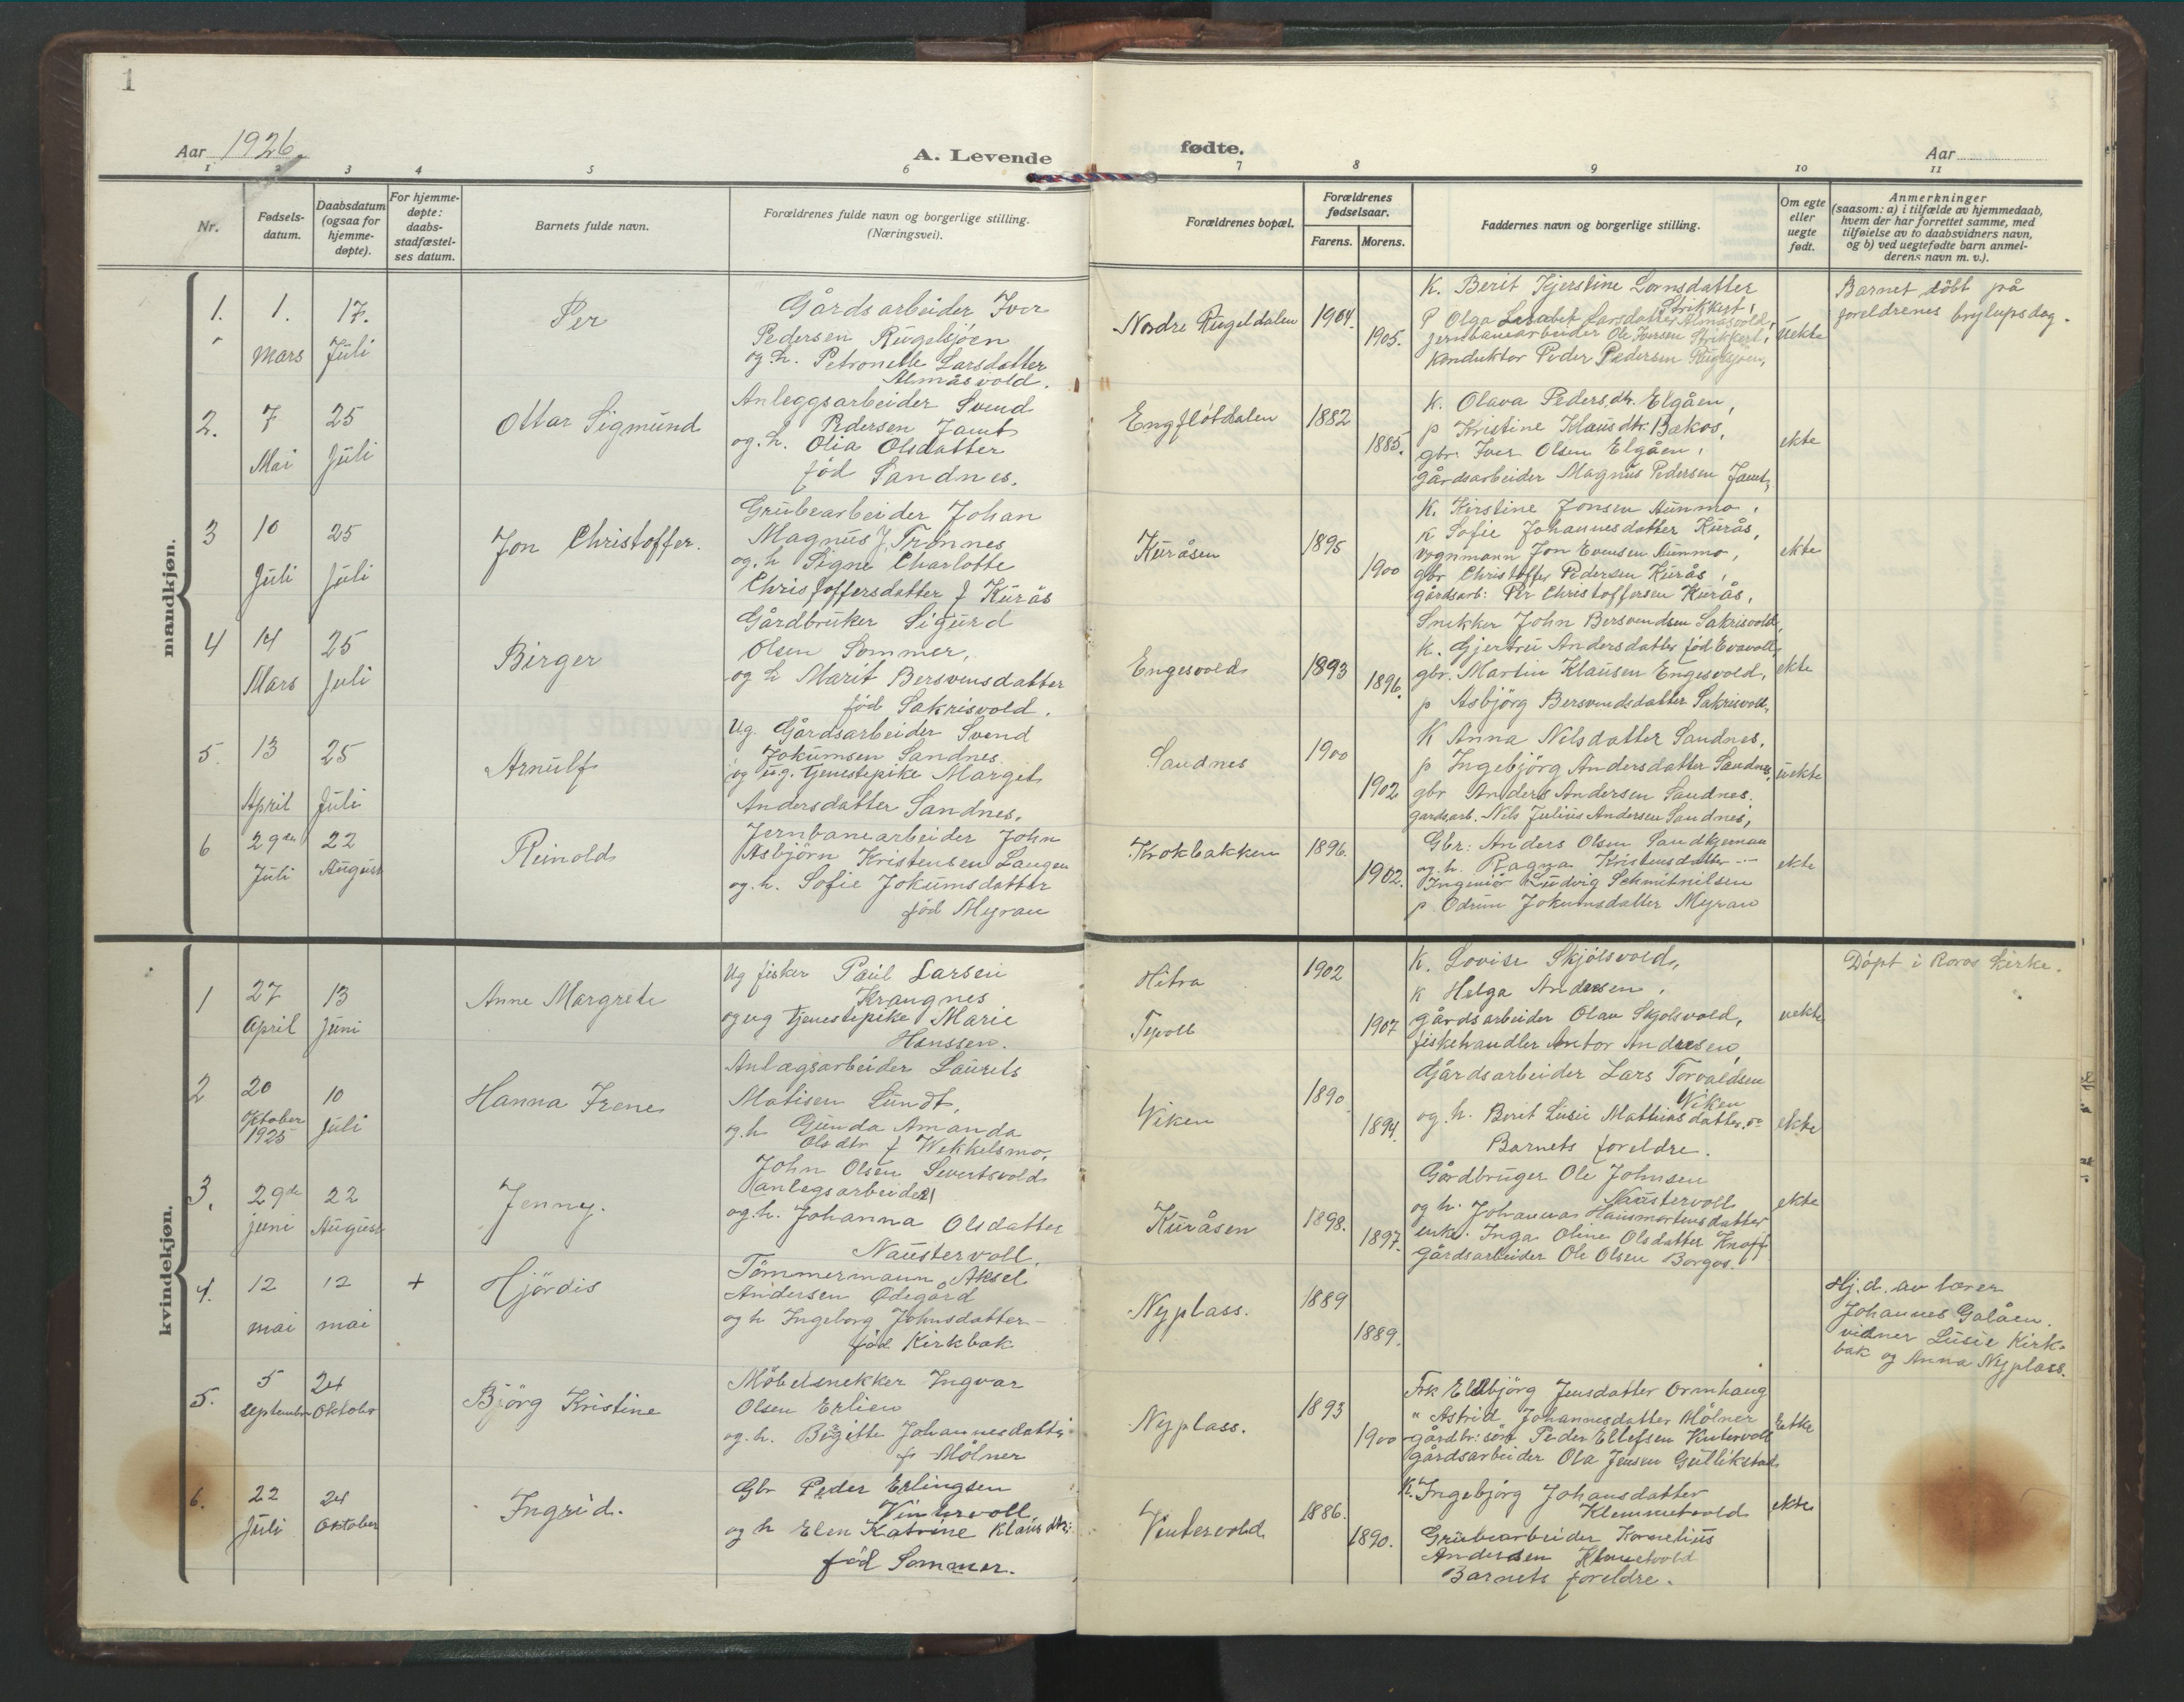 1
Aar 1926.
A. Levende
fødte.
Aar
1 2 3 4 5 6 7 8 9 10 11
Nr.
Fødsels-
datum.
Daabsdatum
(ogsaa for
hjemme-
døpte).
For hjemme-
døpte:
daabs-
stadfæstel-
ses datum.
Barnets fulde navn.
Forældrenes fulde navn og borgerlige stilling.
(Næringsvei).
Forældrenes bopæl.
Forældrenes
fødselsaar.
Farens. Morens.
Faddernes navn og borgerlige stilling.
Om egte
eller
uegte
født.
Anmerkninger
(saasom: a) i tilfælde av hjemmedaab,
hvem der har forrettet samme, med
tilføielse av to daabsvidners navn,
og b) ved uegtefødte barn anmel-
derens navn m. v.).
mandkjøn.
1.
1.
Mars
17.
Juli
Per
Gårdsarbeider Iver
Pedersen Rugelsjöen
og h. Petronelle Larsdatter
Almåsvold.
Nordre Rugeldalen
1904.
1905.
K. Berit Kjerstine Lornsdatter
Strikkert,
P Olga Larsdatter Almåsvold,
jernbanearbeider Ole Iversen Strikkert,
Konduktor Peder Pedersen Rugelsjöen,
uekte
Barnet döbt på
foreldrenes brylupsdag.
2.
7
Mai
25
Juli
Ottar Sigmund
Anleggsarbeider Svend
Pedersen Jamt
og. h. Olia Olsdatter
föd Sandnes.
Engflötdalen
1882
1885.
K. Olava Peders.dtr. Elgåen,
p Kristine Klausdtr. Bakos,
gbr. Iver Olsen Elgåen,
gårdsarbeider Magnus Pedersen Jamt,
ekte
3
10
Juli
25
Juli
Jon Christoffer.
Grubearbeider Johan
Magnus J. Trönnes
og. h Signe Charlotte
Christoffersdatter f Kurås
Kuråsen
1895
1900
K. Kirstine Jonsen Aunmo,
K Sofie Johannesdatter Kurås,
vognmann Jon Evensen Aunmo,
gbr Christoffer Pedersen Kurås,
gårdsarb: Per Christoffersen Kurås,
ekte
4
14
Mars
25
Juli
Birger
Gårdbruker Sigurd
Olsen Sommer,
og h Marit Bersvensdatter
föd Sakrisvold.
Engesvold
1893
1896.
Snekker John Bersvendsen Sakrisvold,
K. Gjertru Andersdatter föd Evavoll,
gbr. Martin Klausen Engesvold,
p Asbjörg Bersvendsdatter Sakrisvold,
ekte
5.
13
April
25
Juli
Arnulf
Ug. Gårdsarbeider Svend
Jokumsen Sandnes.
og ug. tjenestepike Marget
Andersdatter Sandnes.
Sandnes
1900
1902
K Anna Nilsdatter Sandnes,
p Ingebjörg Andersdatter Sandnes,
gbr Anders Andersen Sandnes.
gardsarb. Nils Julius Andersen Sandnes,
uekte
6
29de
Juli
22
August
Reinold
Jernbanearbeider John
Asbjörn Kristensen Langen
og. h. Sofie Jokumsdatter
föd Myran
Krokbakken
1896.
1902.
Gbr: Anders Olsen Sandkjernan
og. h. Ragna Kristensdatter -"-
Ingeniör Ludvig Schmitnilsen
p Odrun Jokumsdatter Myran
ekte
kvindekjøn.
1
27
April
13
Juni
Anne Margrete
Ug fisker Paul Larsen
Krangnes
og ug tjenestepike Marie
Hanssen.
Hitra
1902
1907
K. Lovise Skjölsvold,
K Helga Andersen,
gårdsarbeider Olav Skjolsvold,
fiskehandler Antor Andresen,
uekte
Döpt i Roros kirke.
2
20
Oktober
1925
10
Juli
Hanna Irene
Anlægsarbeider Laurets
Matisen Lundt,
og. h Gunda Amanda
Ols dtr f Wekkelsmo.
Viken
1890
1894.
Gårdsarbeider Lars Torvaldsen
Viken
og. h. Berit Lusie Mathiasdatter.
Barnets foreldre.
ekte
3.
29de
juni
22
August
Jenny.
John Olsen Severtsvold
(anlegsarbeider)
og. h. Johanna Olsdatter
Naustervoll.
Kuråsen
1898.
1897.
Gårdbruger Ole Johnsen
Naustervoll
og h. Johannas Hansmortensdatter
enke. Inga Oline Olsdatter Knoff
gårdsarbeider Ole Olsen Borgos.
ekte
4.
12
mai
12
mai
+
Hjördis
Tömmermann Aksel
Andersen Ødegård
og h Ingeborg Johnsdatter
föd Kirkbak
Nyplass.
1889
1889.
Hj.d. av lærer
Johannes Galåen.
vidner Lusie Kirk-
bak og Anna Nyplass.
5.
5
September
24
Oktober
Björg Kristine
Möbelsnekker Ingvar
Olsen Erlien
og. h. Birgitte Johannesdatter
f. Mölner
Nyplass.
1893
1900
Frk Eldbjörg Jensdatter Ormhaug
" Astrid Johannesdatter Mölner
gårdbr: sön Peder Ellefsen Vintervoll
gårdsarbeider Ola Jensen Gullikstad
Eckte
6.
22
Juli
24
Oktober
Ingrid.
Gbr Peder Erlingsen
Vintervoll
og h Elen Katrine Klaus dtr:
föd Sommer.
Vintervold
1886.
1890.
K. Ingebjörg Johansdatter
Klemmetvold
Grubearbeider Kornelius
Andersen Klemetvold
Barnets foreldre.
ekte